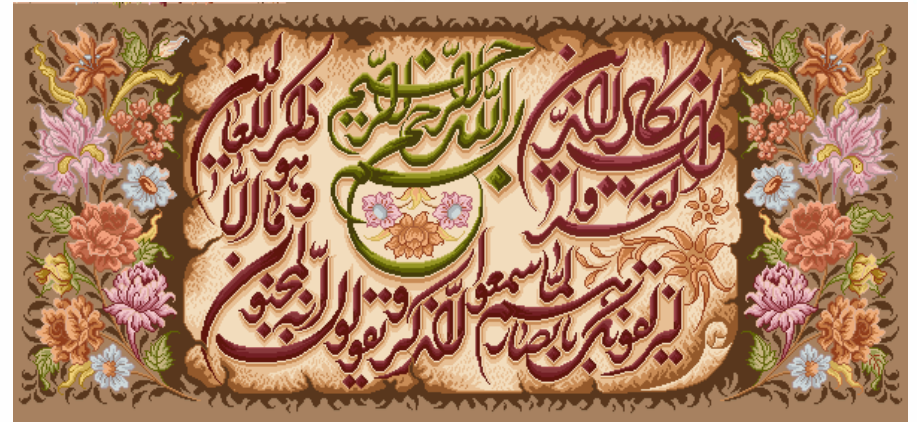 بسم الله الرحمن الرحیم
وان یکاد الذین
کفروا
لیزلقونک بابصارهم لما سمعوا
الذکر و یقولون انه لمجنون
و ما هو الا
ذکر للعالمین